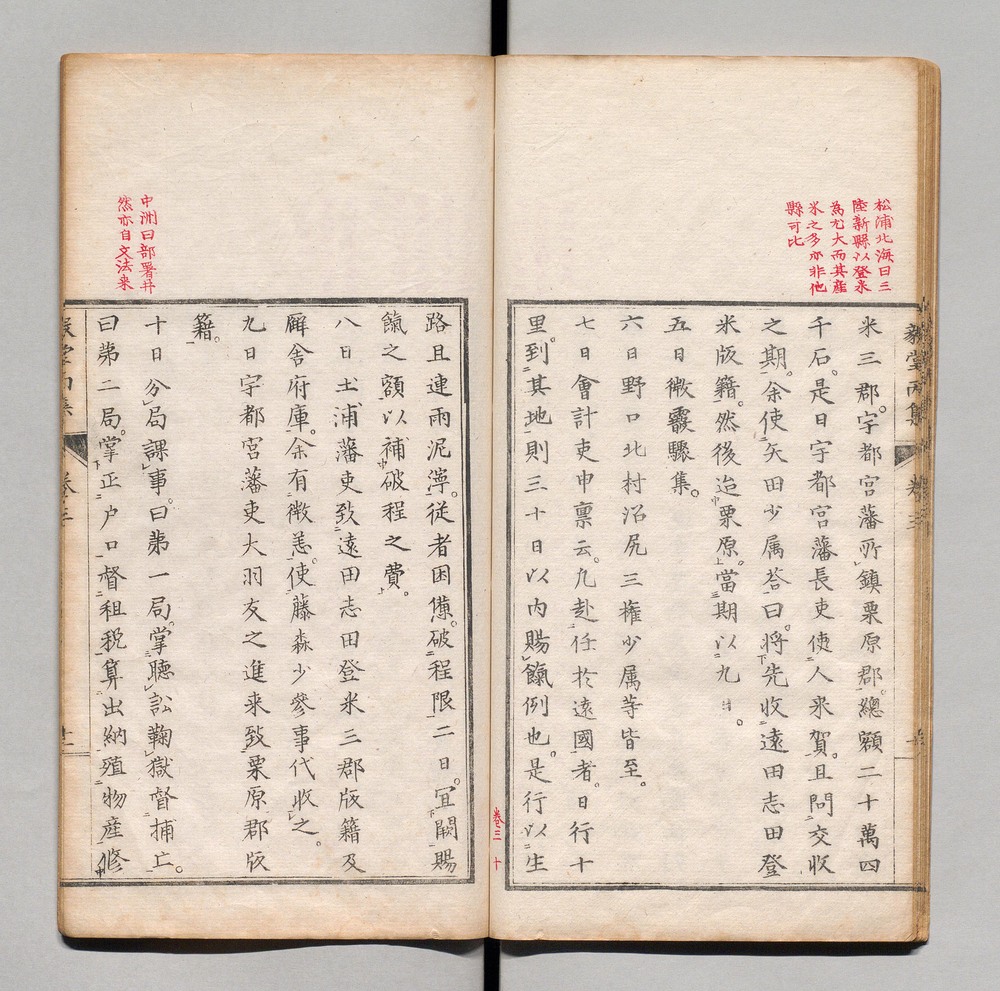 松浦北海曰三
陸新縣以登米
為尤大而其産
米之多亦非他
縣可比
毅堂丙集
卷三
米三郡宇都宮藩所鎮栗原郡總額二十萬四
千石是日宇都宮藩長吏使人來賀且問交收
之期余使矢田少属荅曰将先收遠田志田登
米版籍然後迨栗原當期以九日
五日微霰驟集
六日野口北村沼尻三権少属等皆至
七日會計吏申稟云凡赴任於遠國者日行十
里到其地則三十日以内賜餼例也是行以生
卷三 十
中洲曰部署井
然亦自文法来
路且連雨泥濘従者困憊破程限二日冝闕賜
餼之額以補破程之費
八日土浦藩吏致遠田志田登米三郡版籍及
廨舎府庫余有微恙使藤森少参事代收之
九日宇都宮藩吏大羽友之進来致栗原郡版
籍
十日分局課事曰第一局掌聴訟鞠獄督捕亡
曰第二局掌正户口督租税算出納殖物産修
卷三